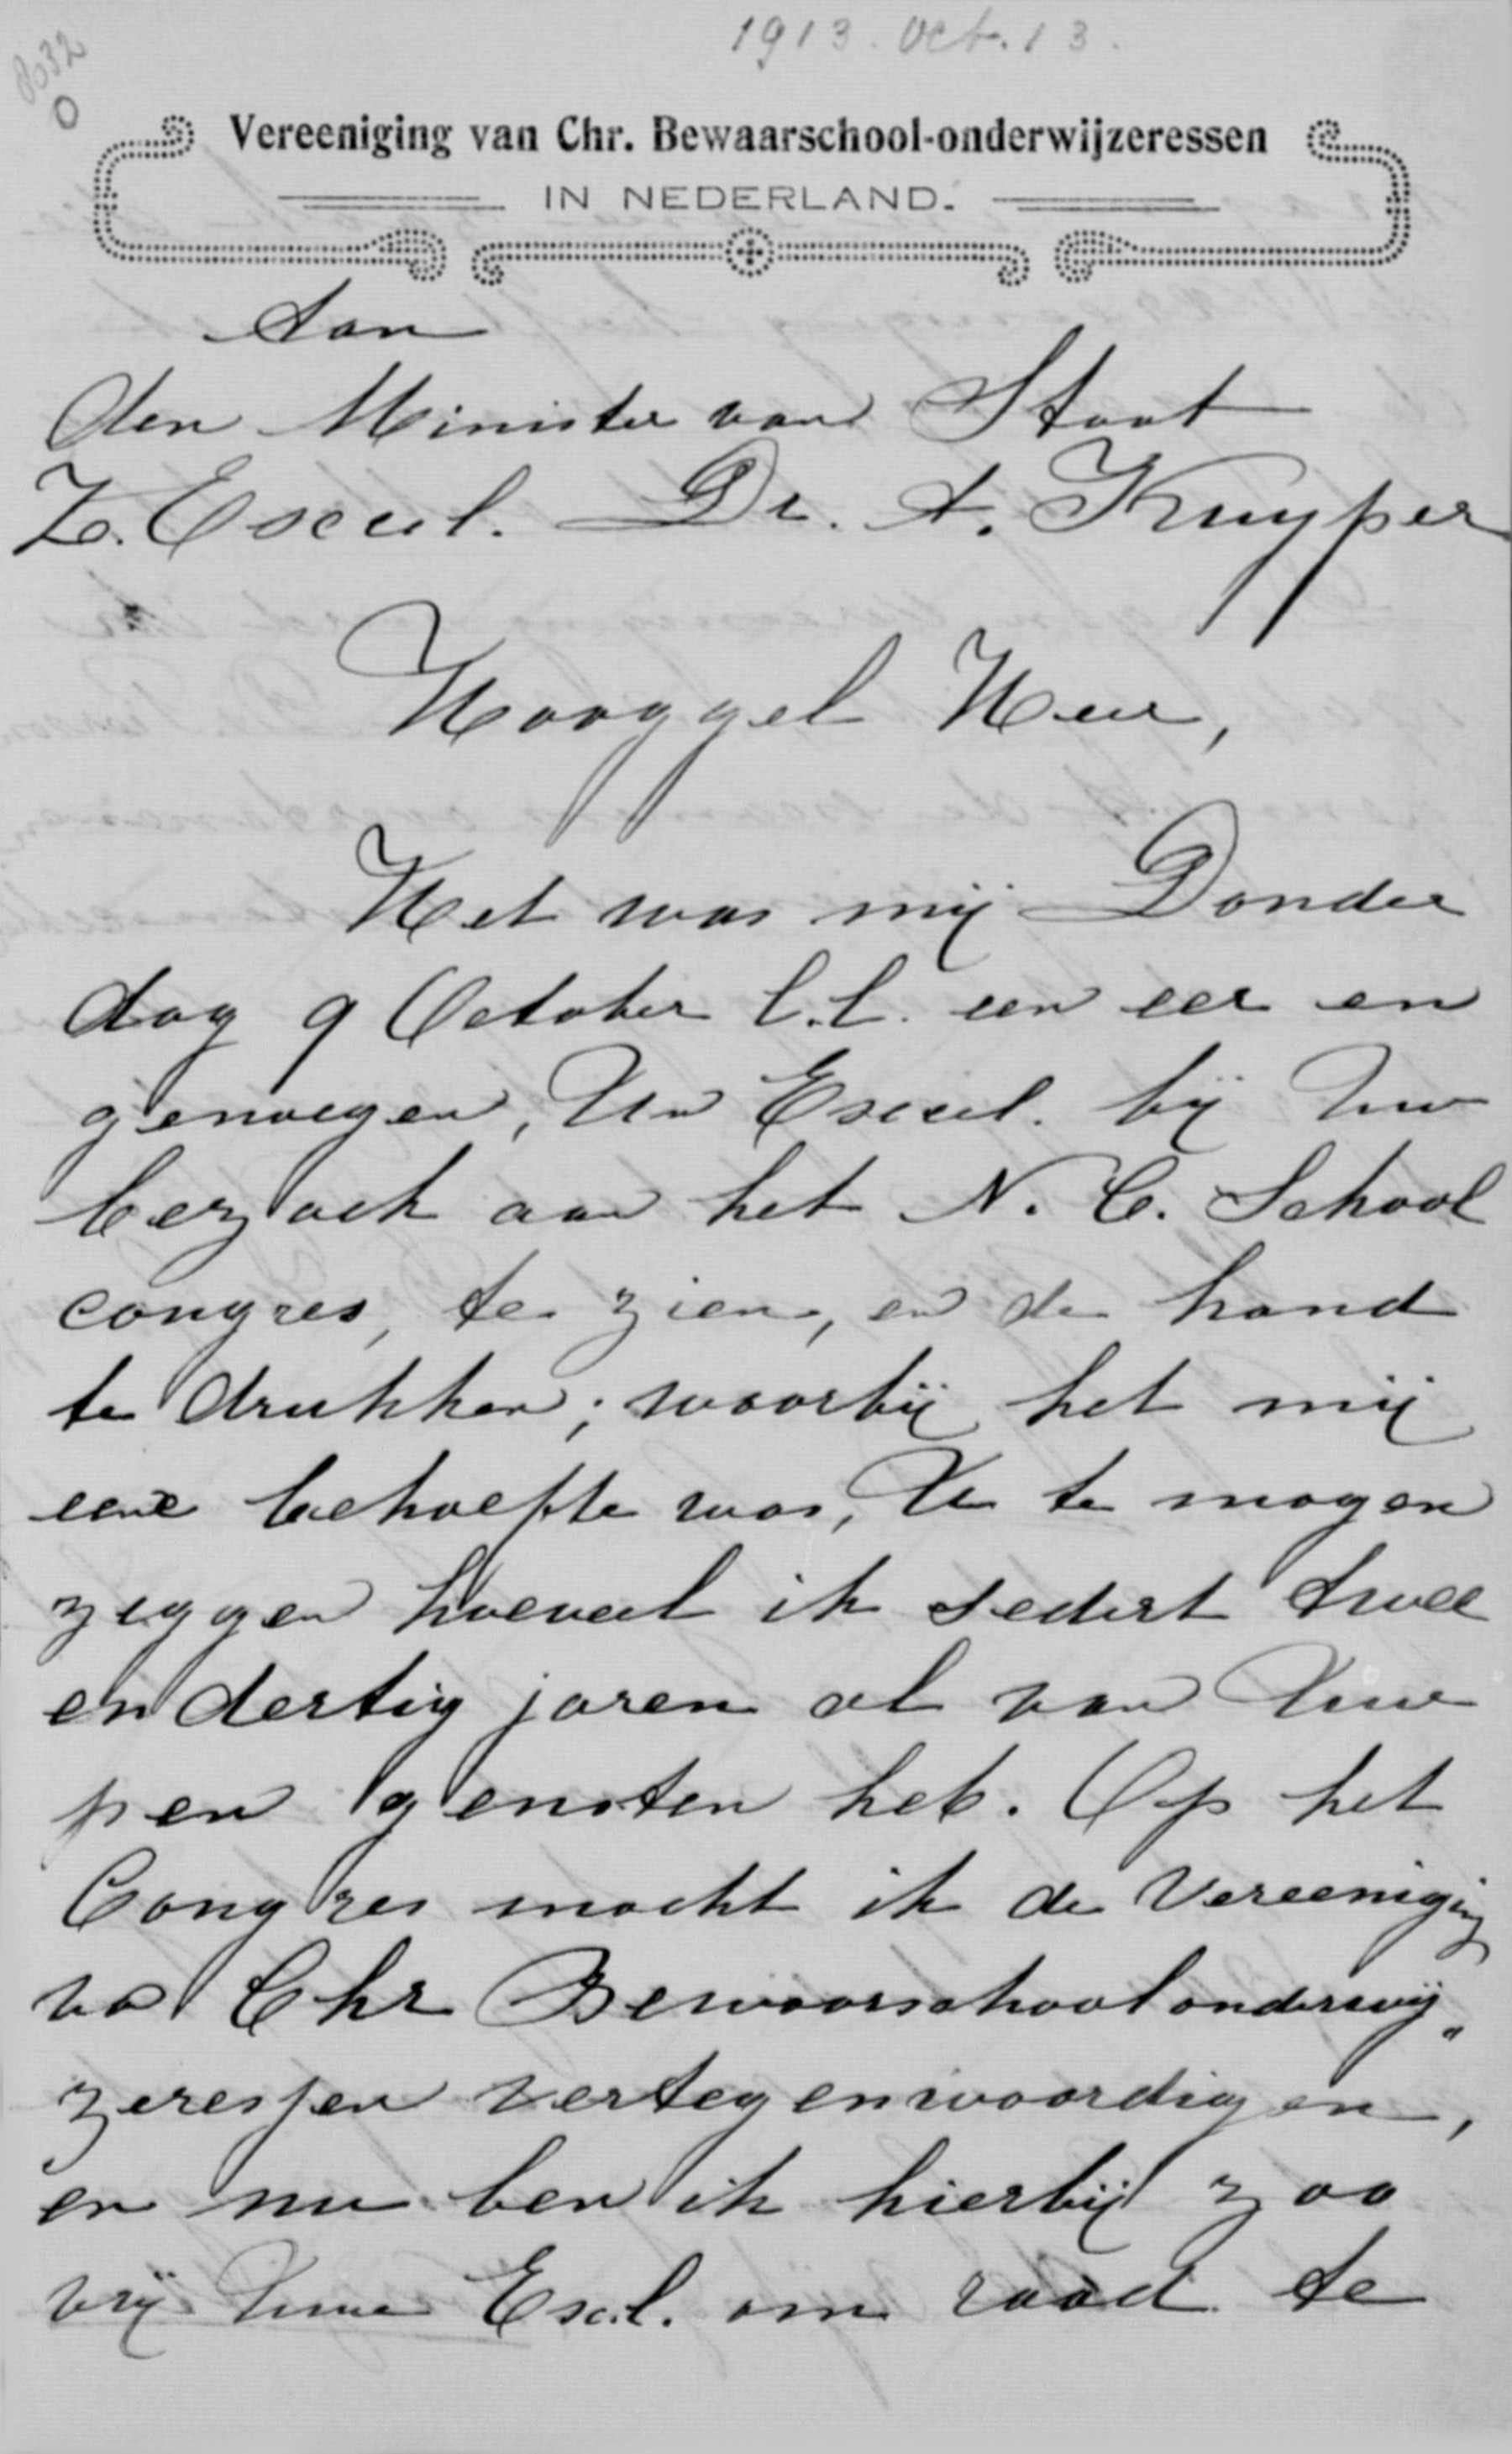 1913. Oct. 13.
8032
0
Vereeniging van Chr. Bewaarschool-onderwijzeressen
IN NEDERLAND.
Aan
den Minister van Staat
Z. Excel. Dr. A. Kuyper
Hooggel Heer,
Het was mij Donder
dag 9 October l.l. een eer en
genoegen, Uw Excel. bij Uw
bezoek aan het N. C. School
congres, te zien, en de hand
te drukken; waarbij het mij
eene behoefte was, U te mogen
zeggen hoeveel ik sedert twee
en dertig jaren al van Uwe
pen genoten heb. Op het
Congres mocht ik de Vereeniging
va Chr Bewaarschoolonderwij„
zeressen vertegenwoordigen,
en nu ben ik hierbij zoo
vrij Uwe Excl. om raad te